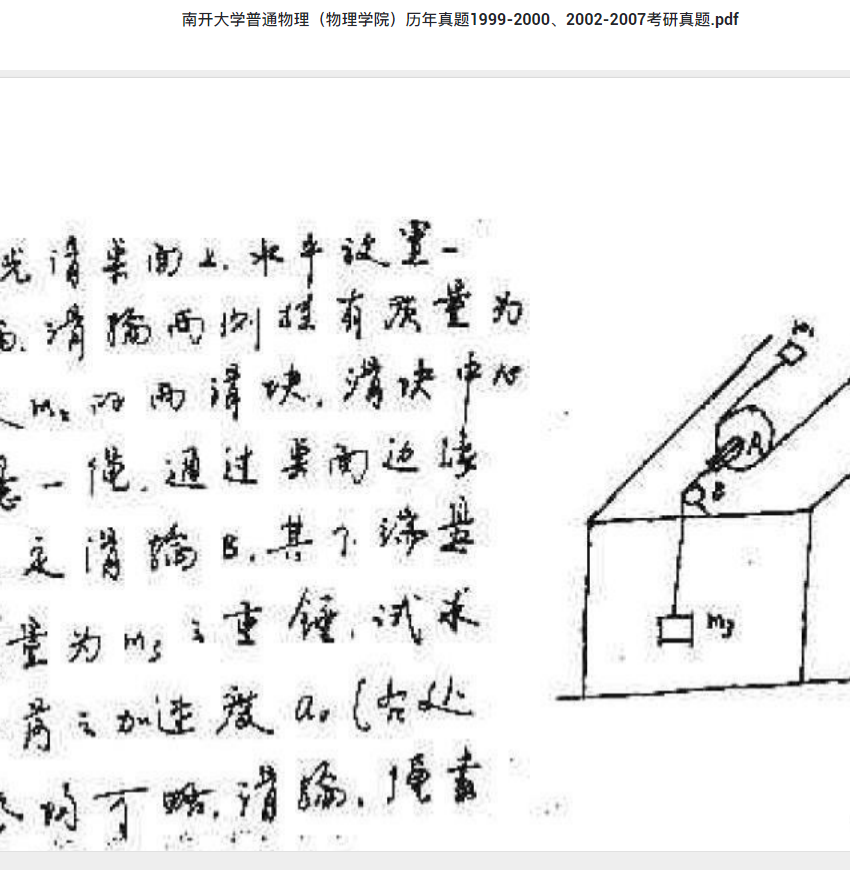 南开大学普通物理（物理学院）历年真题1999-2000、2002-2007考研真题.pdf
光滑桌面上.水平放置一
滑轮两侧挂有质量为
m₂的两滑块.滑块中心
一绳.通过桌面边缘
定滑轮B.其下端悬
量为m₃之重锤,试求
之加速度a.(各处
均可略.滑轮.绳素
m₁
A
B
m₃